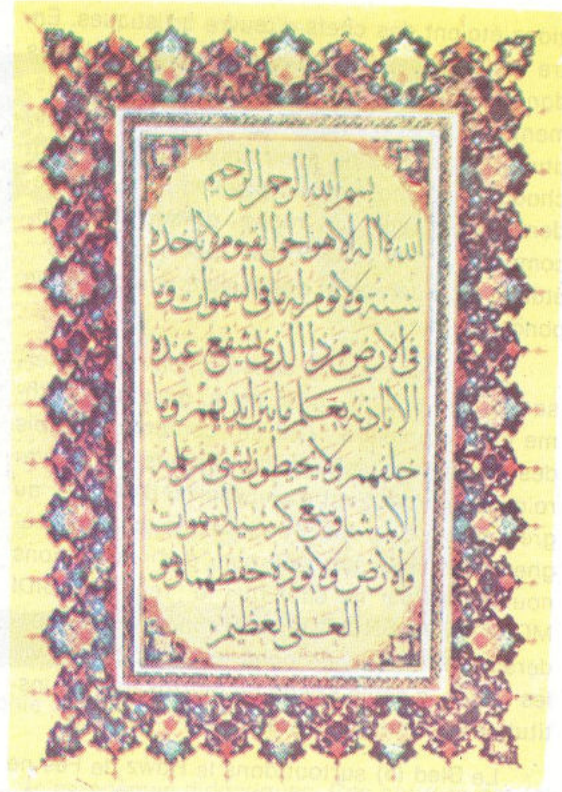 بسم الله الرحمن الرحيم
الله لا اله الا هو الحى القيوم لا تاخذه
سنة ولا نوم له ما فى السموات وما
فى الارض من ذا الذى يشفع عنده
الا باذنه يعلم ما بين ايديهم وما
خلفهم ولا يحيطون بشئ من علمه
الا بما شا وسع كرسيه السموات
والارض ولا يوده حفظهما وهو
العلى العظيم